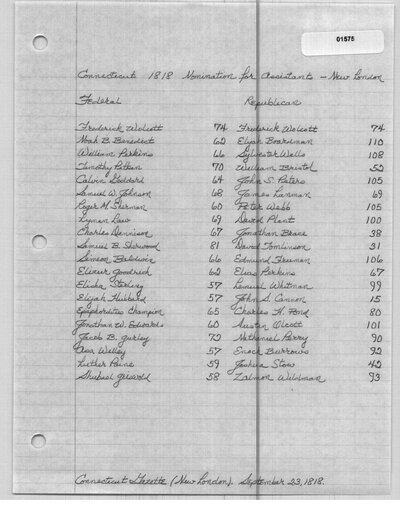 01575
Connecticut 1818 Nomination for Assistants - New London
Federal Republican
Frederick Wolcott 74 Frederick Wolcott 74
Noah B. Benedict 60 Elijah Boardman 110
William Perkins 66 Sylvester Wells 108
Timothy Pitkin 70 William Bristol 50
Calvin Goddard 64 John S. Peters 105
Samuel W. Johnson 68 James Lanman 69
Roger M. Sherman 60 Peter Webb 105
Lyman Law 69 David Plant 100
Charles Dennison 67 Jonathan Brace 38
Samuel B. Sherwood 81 David Tomlinson 31
Simeon Baldwin 66 Edmund Freeman 106
Elizur Goodrich 62 Elias Perkins 67
Elisha Sterling 57 Lemuel Whitman 99
Elijah Hubbard 57 John S. Cannon 15
Epaphroditus Champion 65 Charles H. Pond 80
Jonathan W. Edwards 60 Austin Olcott 101
Jacob B. Gurley 72 Nathaniel Perry 90
Asa Willey 57 Enoch Burrows 92
Luther Paine 59 Joshua Stow 42
Shubael Griswold 58 Zalmon Wildman 93
Connecticut Gazette (New London). September 23, 1818.